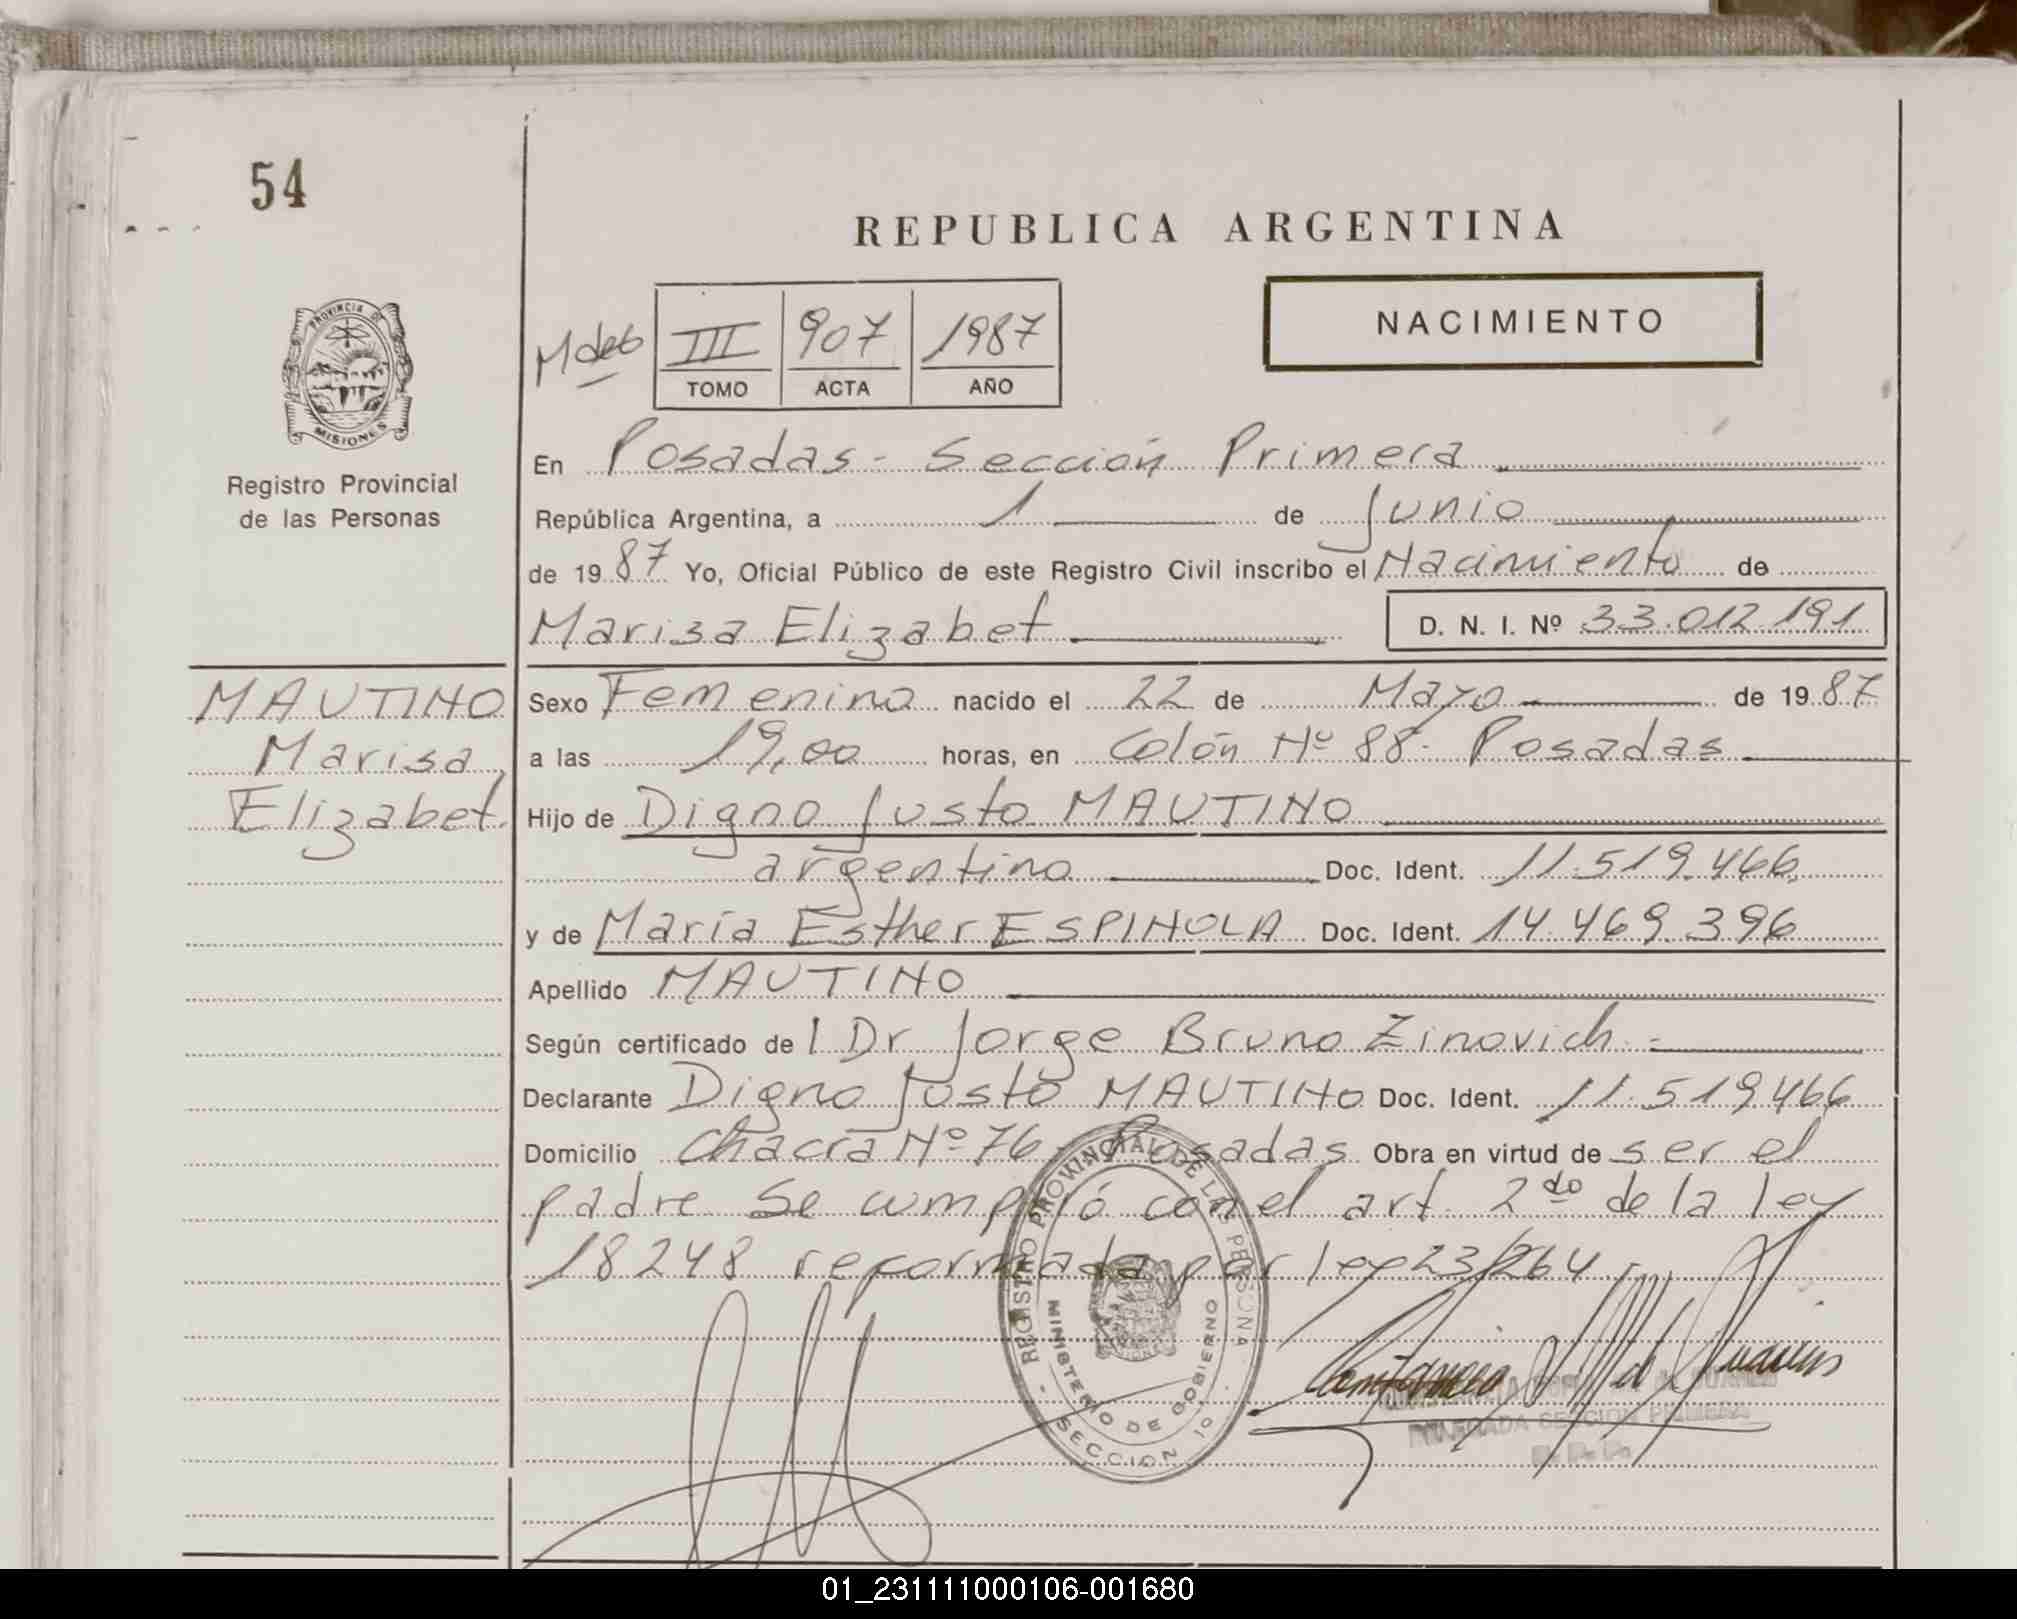 54
REPUBLICA ARGENTINA
NACIMIENTO
III 907 1987
TOMO ACTA AÑO
PROVINCIA DE
MISIONES
Registro Provincial
de las Personas
En Posadas - Sección Primera
República Argentina, a 1 de Junio
de 1987 Yo, Oficial Público de este Registro Civil inscribo el Nacimiento de
Marisa Elizabet D. N. I. Nº 33.012.191
MAUTINO
Marisa
Elizabet.
Sexo Femenino nacido el 22 de Mayo de 1987
a las 19,00 horas, en Colón Nº 88- Posadas
Hijo de Digno Justo MAUTINO
argentino Doc. Ident. 11.519.466.
y de María Esther ESPINOLA Doc. Ident. 14.469.396
Apellido MAUTINO
Según certificado de l Dr Jorge Bruno Zinovich.-
Declarante Digno Justo MAUTINO Doc. Ident. 11.519.466
Domicilio Chacra Nº 76 - Posadas Obra en virtud de ser el
padre Se cumplió con el art. 2do de la ley
18248 reformada por ley 23/264
REGISTRO PROVINCIAL DE LAS PERSONAS
MINISTERIO DE GOBIERNO
- SECCION 1º -
DELEGADA SECCION PRIMERA
R. P. P.
01_231111000106-001680